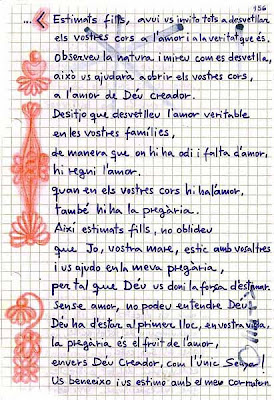 156
... < Estimats fills, avui us invito tots a desvetllar
els vostres cors a l'amor i a la veritat que és.
Observeu la natura i mireu com es desvetlla,
això us ajudarà a obrir els vostres cors,
a l'amor de Déu Creador.
Desitjo que desvetlleu l'amor veritable
en les vostres famílies,
de manera que on hi ha odi i falta d'amor,
hi regni l'amor.
quan en els vostres cors hi ha l'amor,
també hi ha la pregària.
Així estimats fills, no oblideu
que Jo, vostra mare, estic amb vosaltres
i us ajudo en la meva pregària,
per tal que Déu us doni la força d'estimar.
Sense amor, no podeu entendre Déu.
Déu ha d'estar al primer lloc, en vostra vida,
la pregària és el fruit de l'amor,
envers Déu Creador, com l'Únic Senyor!
Us beneeixo i us estimo amb el meu cor matern.